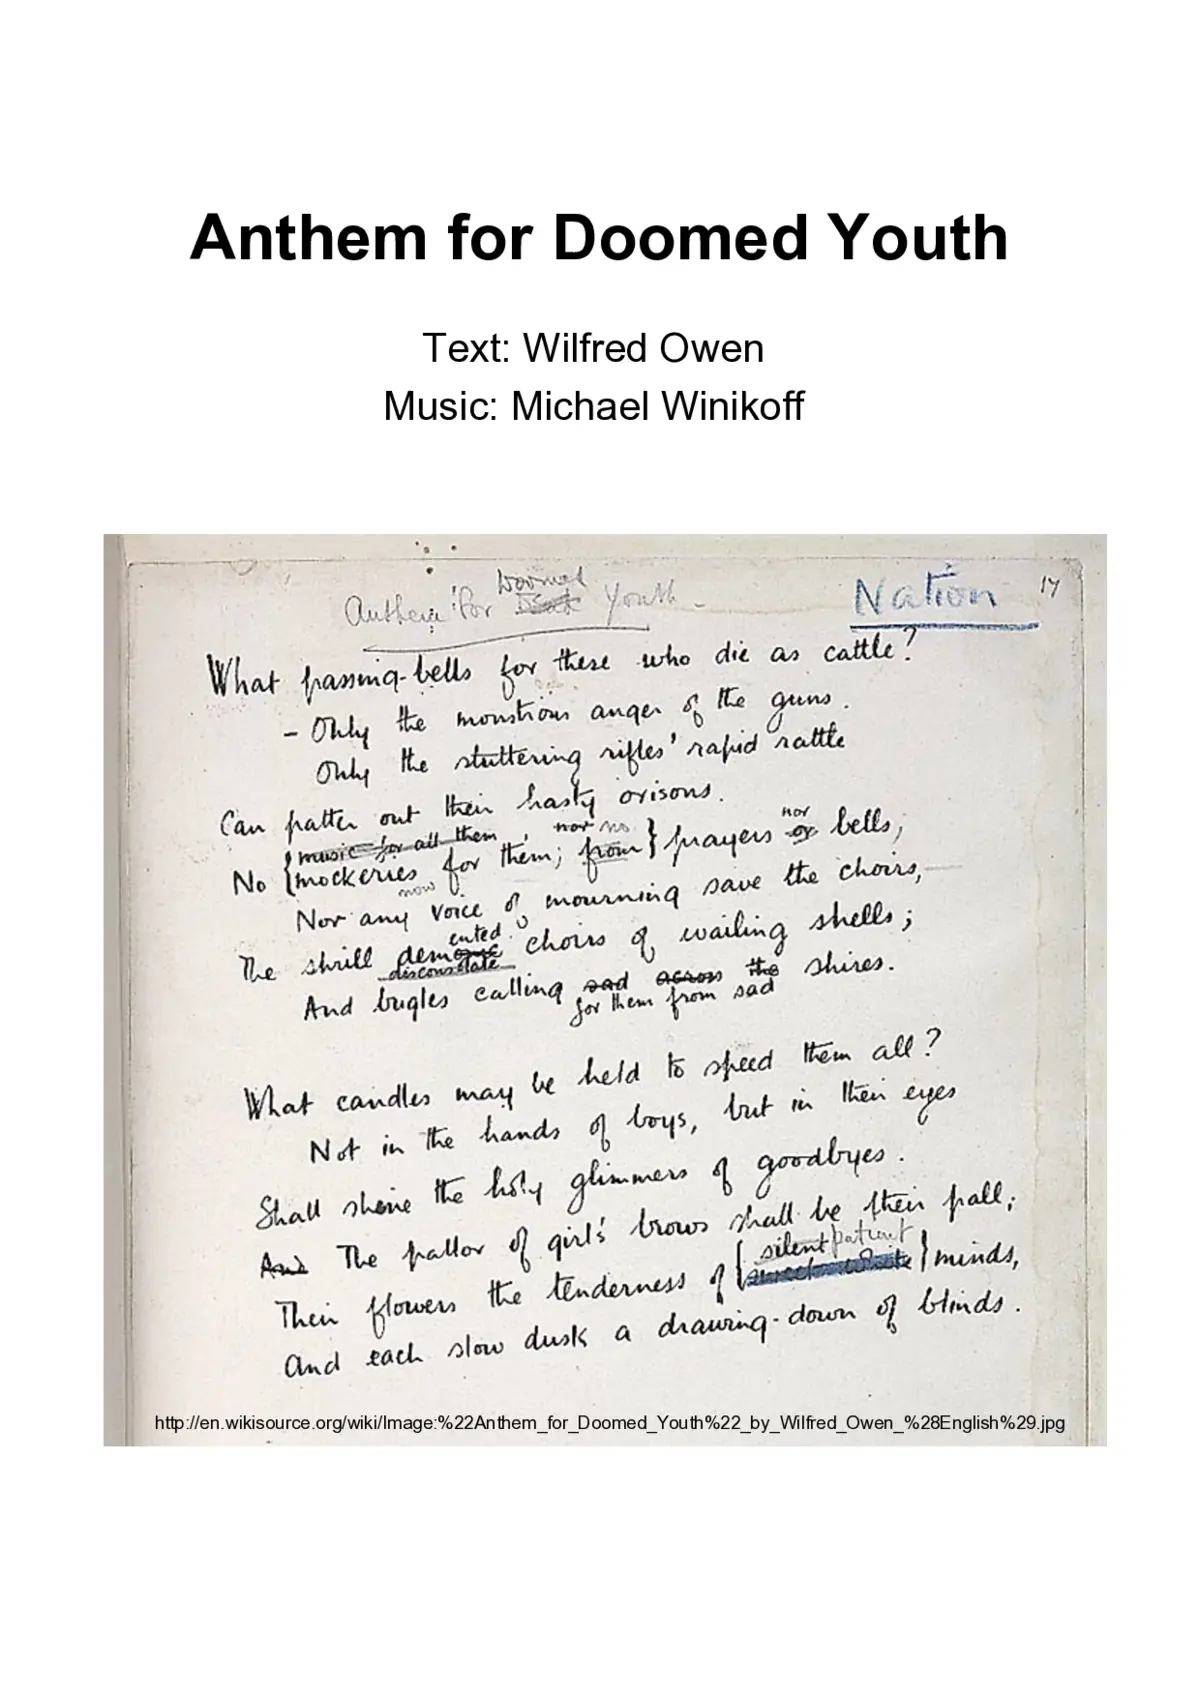 Anthem for Doomed Youth
Text: Wilfred Owen
Music: Michael Winikoff
Doomed
Anthem for Dead Youth Nation 17
What passing-bells for these who die as cattle?
- Only the monstrous anger of the guns.
Only the stuttering rifles' rapid rattle
Can patter out their hasty orisons.
music for all them nor no nor
No mockeries for them; from prayers or bells,
now
Nor any voice of mourning save the choirs,
ented
The shrill demonic choirs of wailing shells;
disconsolate
And bugles calling sad across the shires.
for them from sad
What candles may be held to speed them all?
Not in the hands of boys, but in their eyes
Shall shine the holy glimmers of goodbyes.
And The pallor of girls' brows shall be their pall;
silent patient
Their flowers the tenderness of minds,
And each slow dusk a drawing-down of blinds.
http://en.wikisource.org/wiki/Image:%22Anthem_for_Doomed_Youth%22_by_Wilfred_Owen_%28English%29.jpg